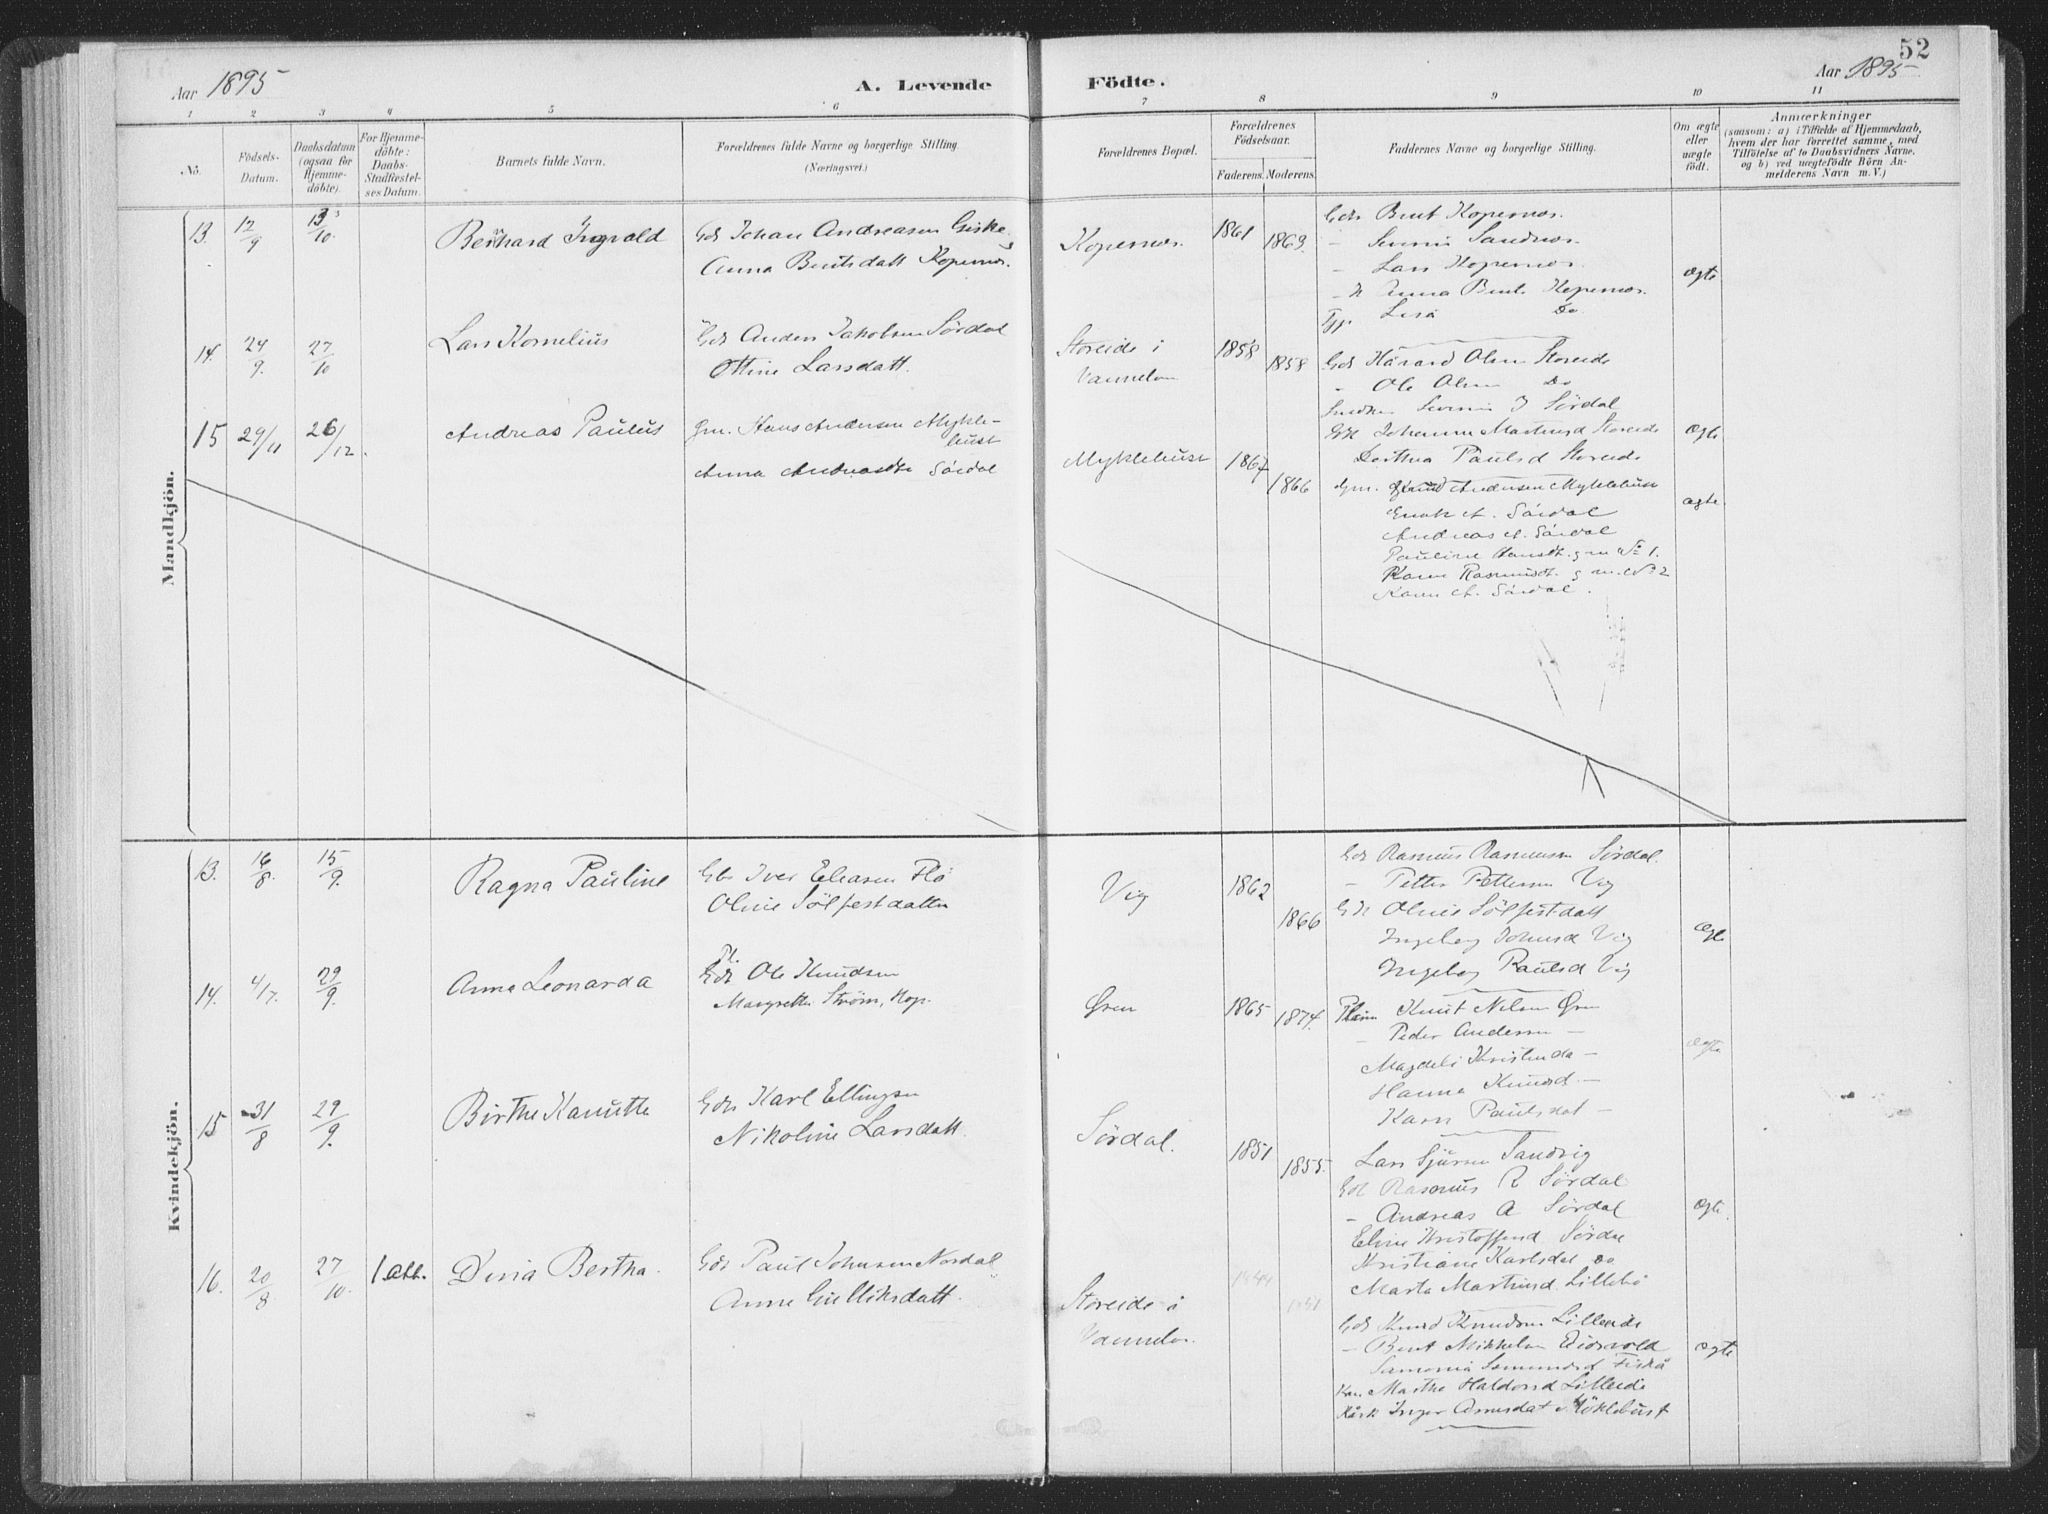 52
Aar 1895
A. Levende Födte.
Aar 1895
1 2 3 4 5 6 7 8 9 10 11
No.
Födsels-Datum.
Daabsdatum (ogsaa for Hjemme-döbte).
For Hjemme-döbte: Daabs-Stadfæstel-ses Datum.
Barnets fulde Navn.
Forældrenes fulde Navne og borgerlige Stilling.
(Næringsvei.)
Forældrenes Bopæl.
Forældrenes Födselsaar.
Faderens. Moderens.
Faddernes Navne og borgerlige Stilling.
Om ægte eller uægte födt.
Anmærkninger
(saasom: a) i Tilfælde af Hjemmedaab, hvem der har forrettet samme, med Tilföielse af to Daabsvidners Navne, og b) ved uægtefödte Börn An-melderens Navn m. V.)
Mandkjön.
13. 12/9 13/10 Bernhard Ingvald
Gds Johan Andreasen Giske
Anna Bentsdatt Kopernæs.
Kopernæs. 1861 1869
Gds Bent Kopernæs.
- Severin Sandnæs.
- Lars Kopernæs.
Anna Bents Kopernæs.
Do
ægte
14. 24/9. 27/10 Lars Kornelius
Gds Anders Jakobsen Sördal
Ottine Larsdatt.
Storeide i
1858 1858
Gds Håvard Olsen Storeide
- Ole Olsen Do
Severin J Sördal
Johanne Martinsd Storeide
Dorthea Paulsd Storeide
ægte
15 29/11 26/12. Andreas Paulus
Gm. Hans Andersen Mykle-
bust
Anna Sördal
Myklebust 1867 1866
Gm. Andersen Myklebust
A. Sördal
Andreas A. Sördal
Pauline Hansdt. g m No 1.
Karen Rasmusdt. g m. No 2
Karen A. Sördal.
ægte
Kvindekjön.
13. 16/8. 15/9. Ragna Pauline
Gbr Iver Eliasen Flö
Oline Sölfestdatter
Vig 1862 1866
Gds Rasmus Rasmusen Sördal.
- Petter Pettersen Vig
Oline Sölfestdatt
Ingeborg Johnsd Vig
Ingeborg Paulsd Vig
ægte
14. 4/7. 29/9. Anna Leonarda
Ole Knudsen
Margrethe Ström, Kop.
Ören 1865 1874.
Knut Nilsen Ören
- Peder Andersen -
Magdeli Kristensda -
Hanna Knudsd. -
Karn Paulsdat -
ægte
15 31/8 29/9. Birthe Kanutte
Gds Karl Ellingsen
Nikoline Larsdatt.
Sördal. 1851 1855.
Lars Sjursen Sandvig
Gds Rasmus R Sördal
- Andreas A Sördal
Eline Kristoffersd Sördal
Kristiane Karlsdat Do
Marta Martinsd. Lillebö
ægte.
16. 20/8 27/10. Dina Bertha.
Gds Paul Johnsen Nordal
Anne Gulliksdatt.
Storeide i
Gds Knud Knudsen Lilleeide
- Bent Mikkelsen Eidsvold
Fiskå
Marthe Haldorsd Lilleeide
Inger Asmusdat Möklebust
ægte